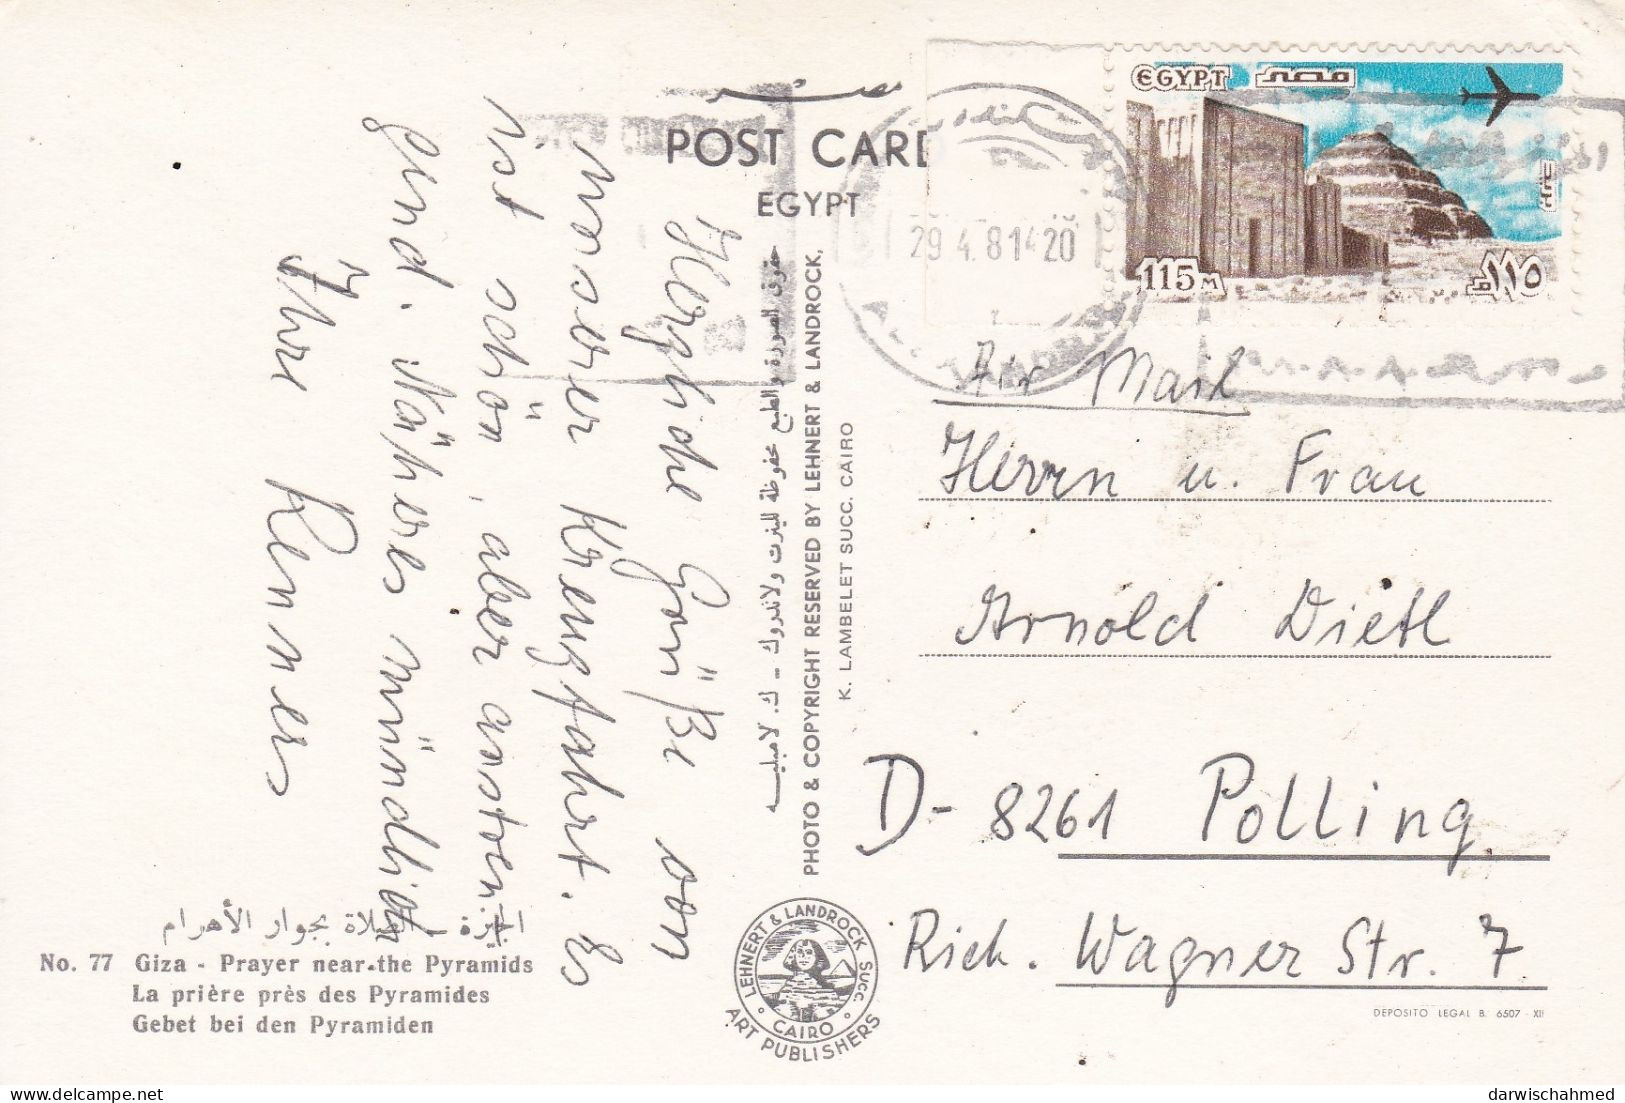 POST CARD
EGYPT
EGYPT مصر
115 M ١١٥
29.4.81 14 20
Herzliche Grüße von
unserer Kreuzfahrt. Es
ist schön, aber anstren
gend. Näheres mündlich
Ihre Renners
حقوق الصورة والطبع محفوظة للينرت ولاندروك - ك. لامبليه
PHOTO & COPYRIGHT RESERVED BY LEHNERT & LANDROCK,
K. LAMBELET SUCC. CAIRO
Air Mail
Herrn u. Frau
Arnold Dietl
D-8261 Polling
Rich. Wagner Str. 7
الجيزة - الصلاة بجوار الأهرام
No. 77 Giza - Prayer near the Pyramids
La prière près des Pyramides
Gebet bei den Pyramiden
LEHNERT & LANDROCK SUCC.
CAIRO
ART PUBLISHERS
DEPOSITO LEGAL B. 6507 - XII
darwischahmed